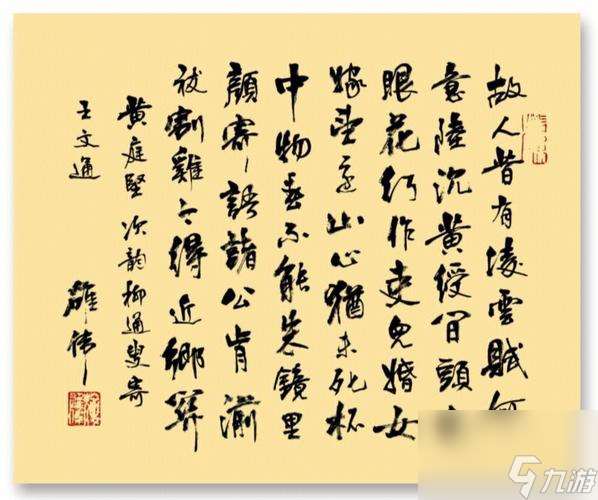 故人昔有凌雲賦何
意陸沉黄綬间頭
眼花行作吏兒婚女
嫁望還山心猶未死杯
中物春不能朱鏡里
顔寄語諸公肯湔
祓割雞今得近鄉關
黄庭堅次韵柳通叟寄
王文通
九游